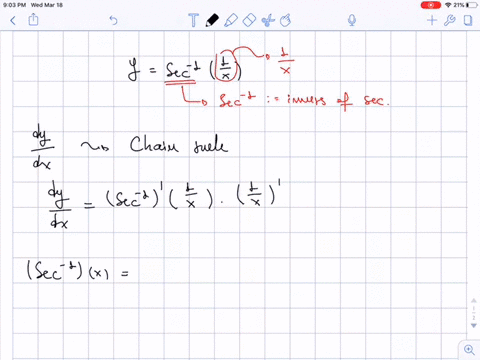 9:03 PM Wed Mar 18
21%
y = Sec⁻¹ (1/x) → 1/x
→ Sec⁻¹ := invers of sec.
dy/dx ⇝ Chain rule
dy/dx = (Sec⁻¹)' (1/x) · (1/x)'
(Sec⁻¹) (x) =